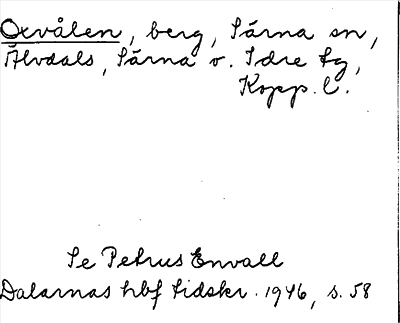 Oxvålen, berg, Särna sn,
Älvdals, Särna o. Idre tg,
Kopp. l.
Se Petrus Envall
Dalarnas hbf tidskr. 1946, s. 58